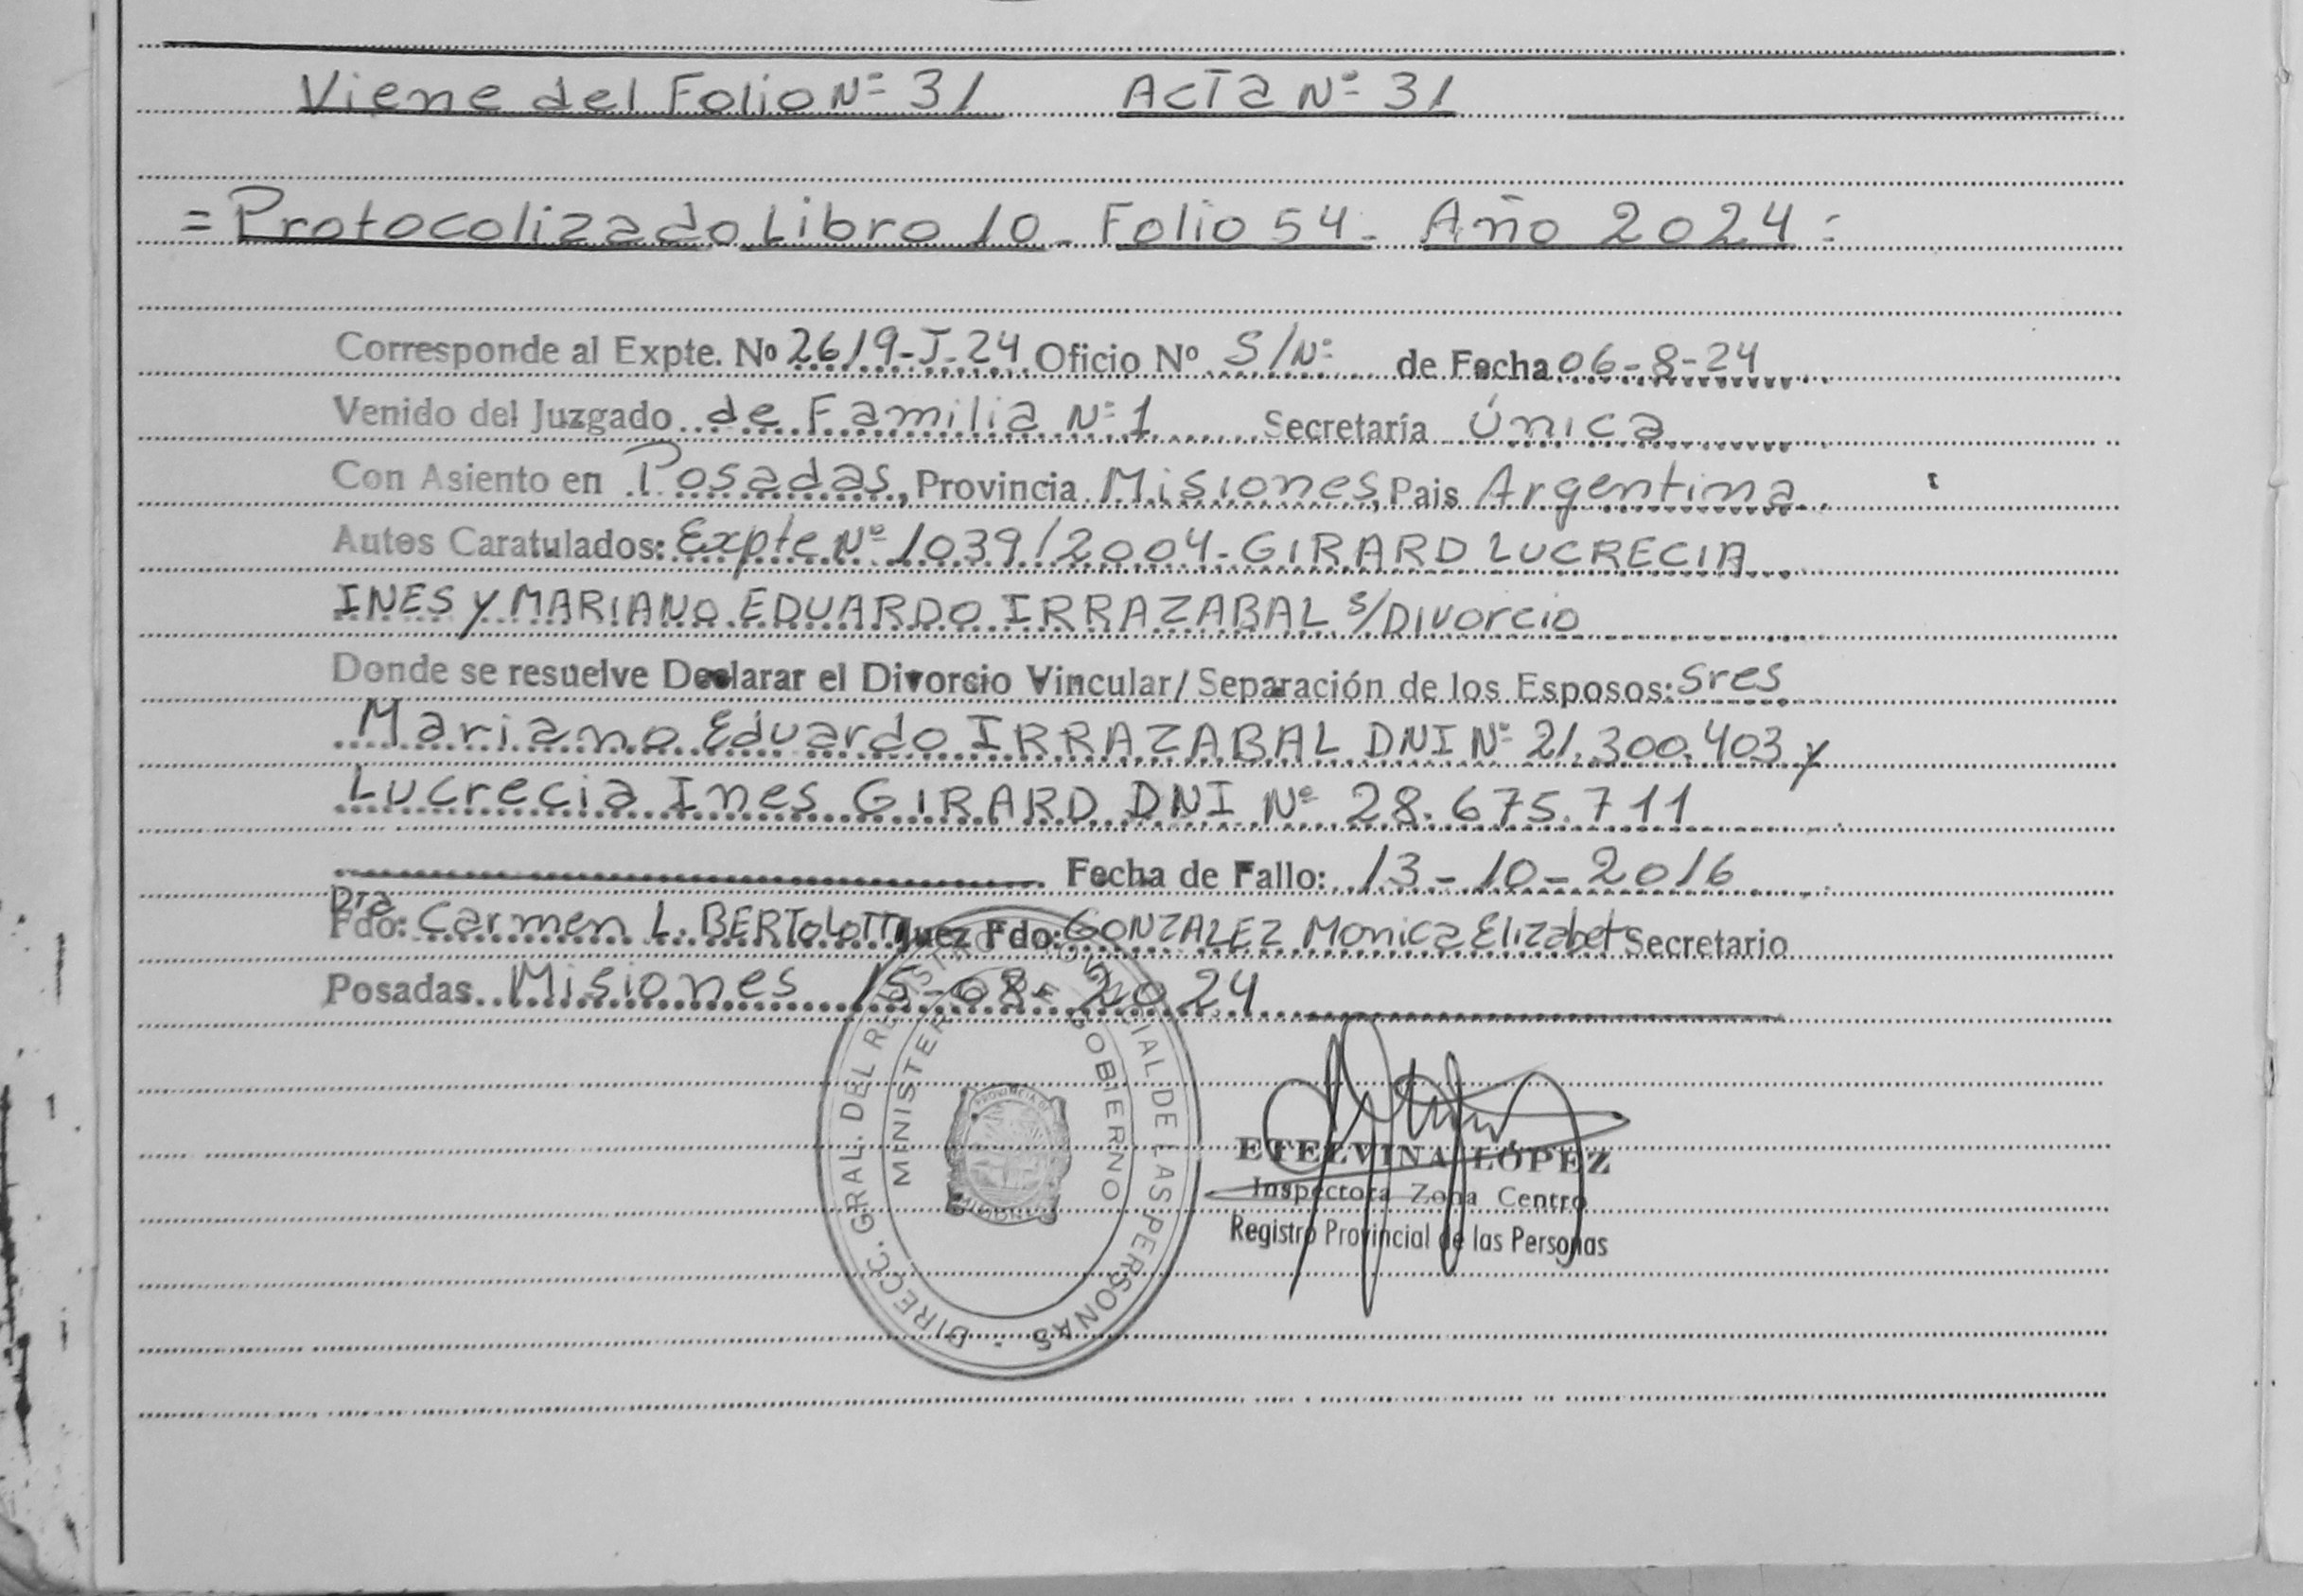 Viene del Folio Nº 31 Acta Nº 31
= Protocolizado Libro 10 - Folio 54 - Año 2024 =
Corresponde al Expte. Nº 2619-J-24 Oficio Nº S/Nº de Fecha 06-8-24
Venido del Juzgado de Familia Nº 1 Secretaría Única
Con Asiento en Posadas, Provincia Misiones, Pais Argentina.
Autos Caratulados: Expte Nº 1039/2004-GIRARD LUCRECIA
INES y MARIANO EDUARDO IRRAZABAL s/Divorcio
Donde se resuelve Declarar el Divorcio Vincular/Separación de los Esposos: Sres
Mariano Eduardo IRRAZABAL DNI Nº 21.300.403 y
Lucrecia Ines GIRARD DNI Nº 28.675.711
Fecha de Fallo: 13-10-2016
Dra
Fdo: Carmen L. BERTOLOTTI Juez Fdo: GONZALEZ Monica Elizabet Secretario
Posadas Misiones 15-08-2024
DIRECC. GRAL. DEL REGISTRO PROVINCIAL DE LAS PERSONAS
MINISTERIO DE GOBIERNO
PROVINCIA DE
MISIONES
ETELVINA LÓPEZ
Inspectora Zona Centro
Registro Provincial de las Personas